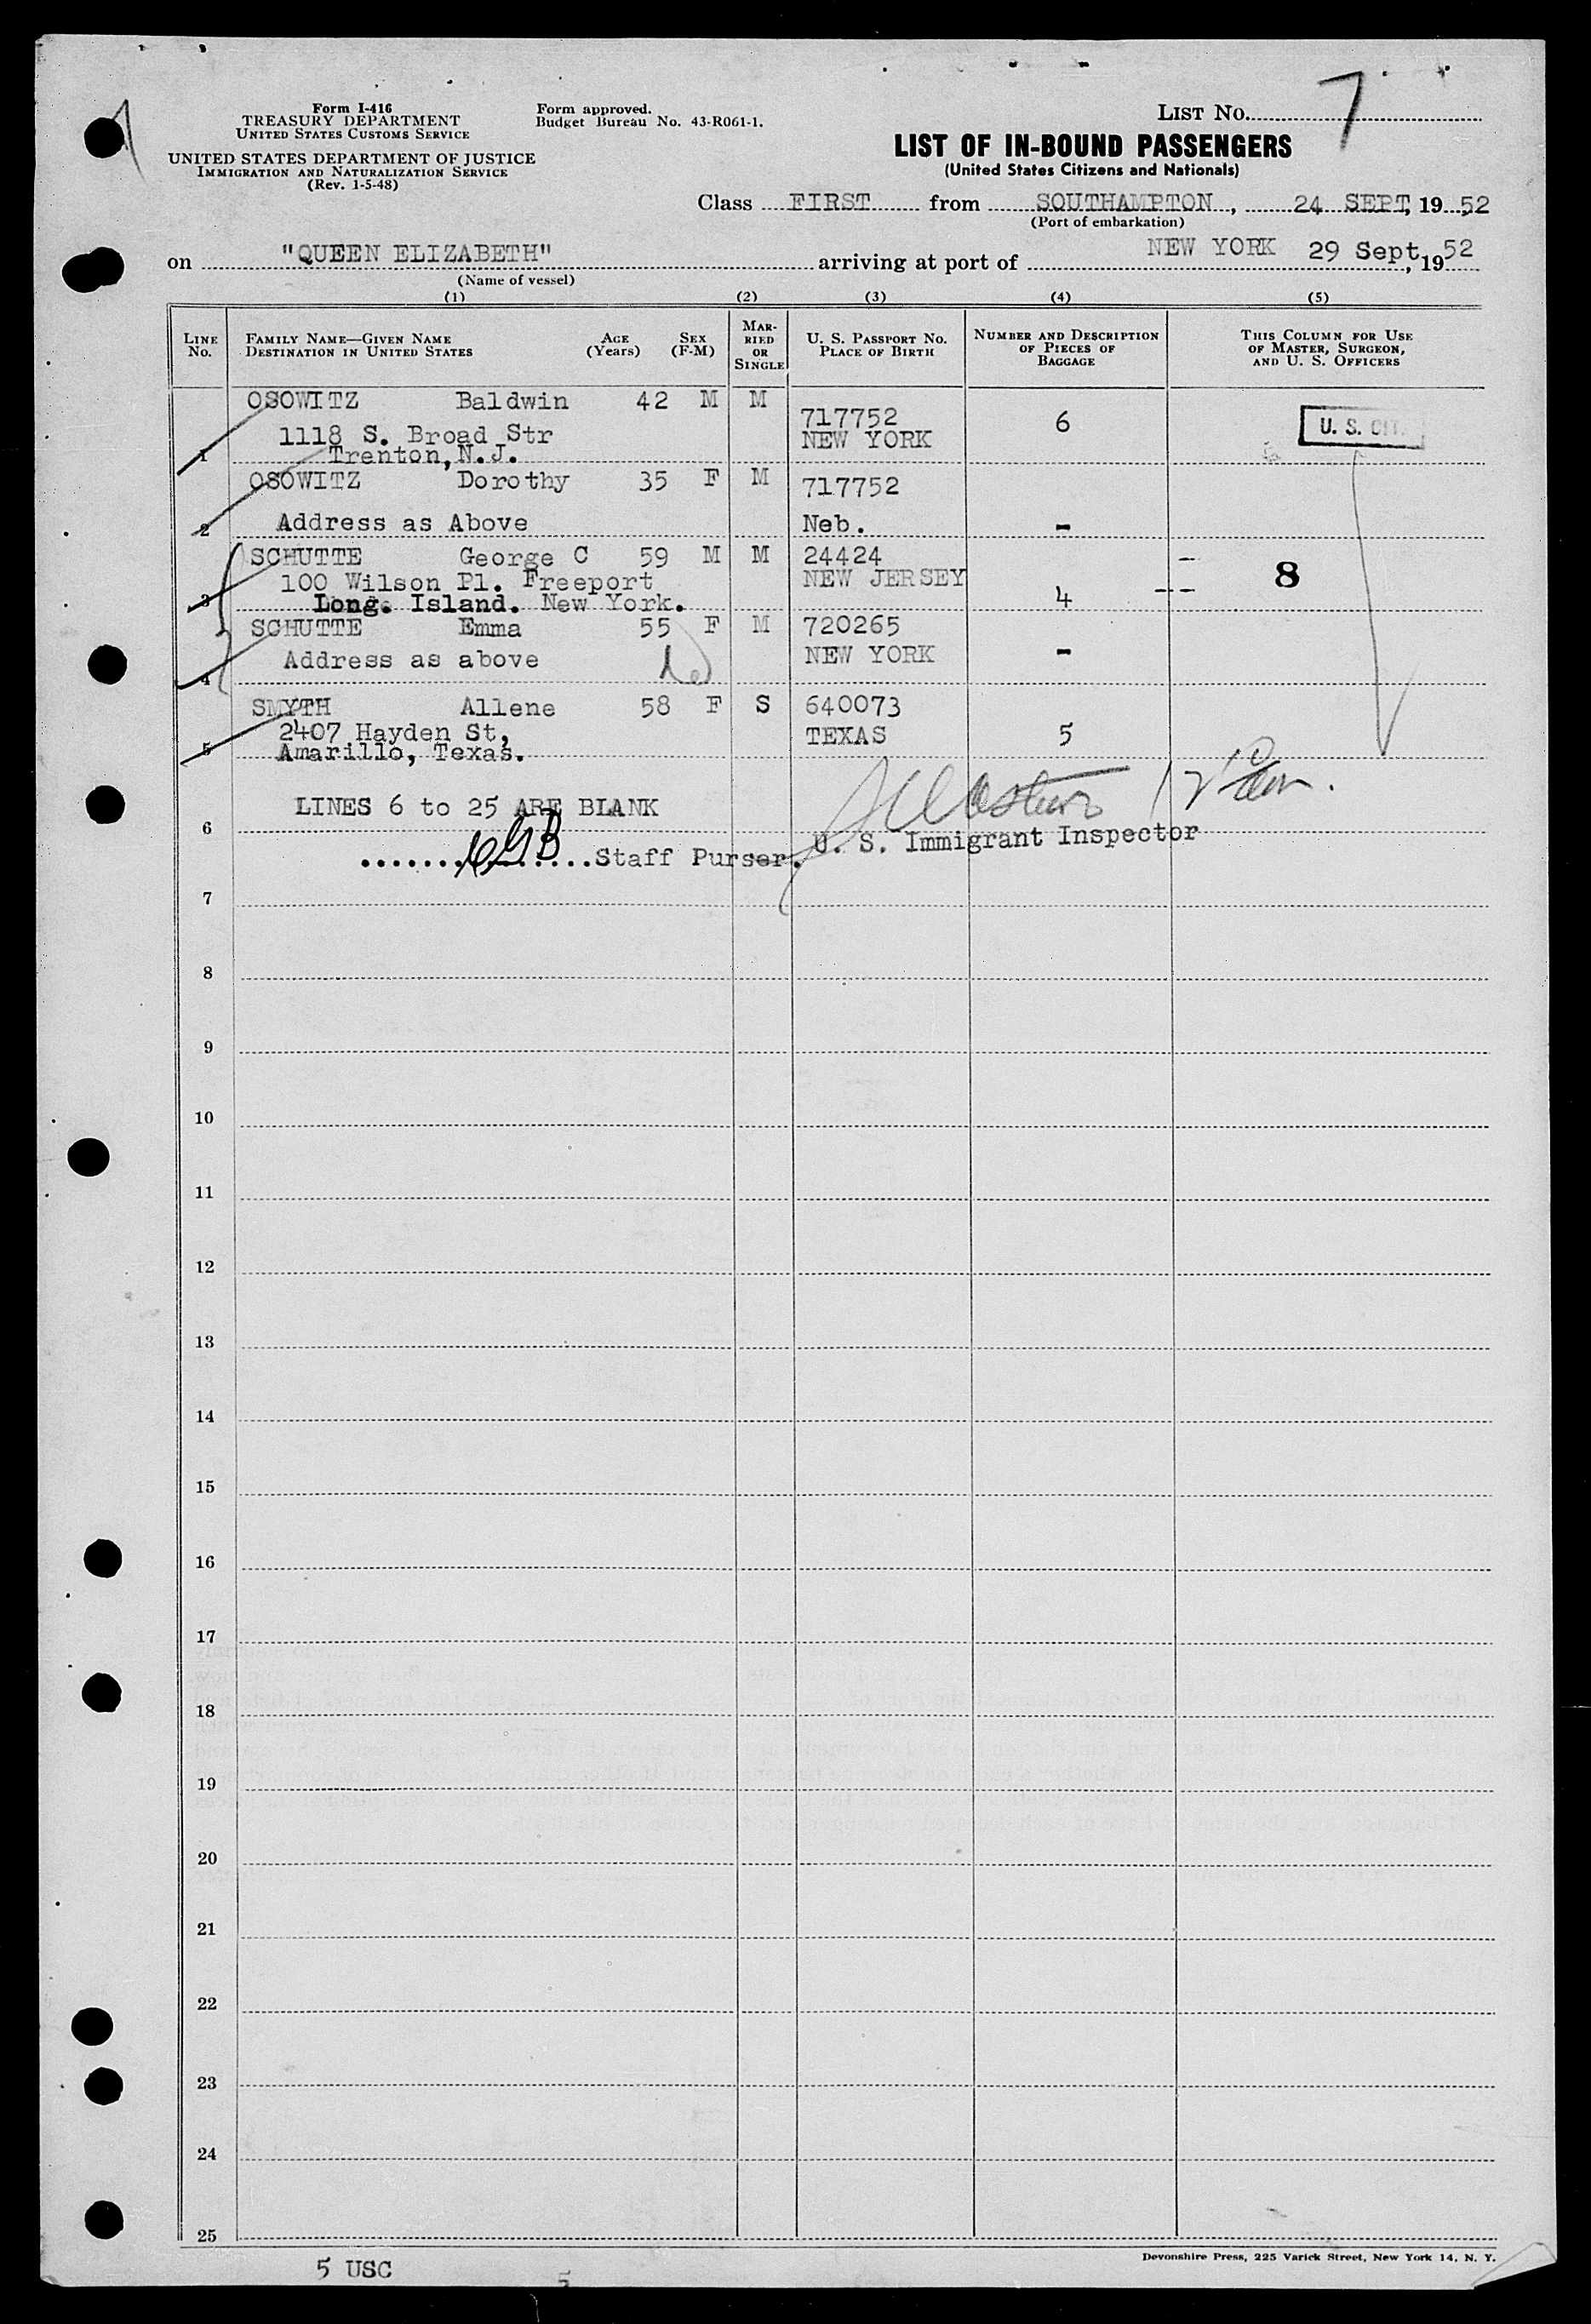 Form I-416
TREASURY DEPARTMENT
UNITED STATES CUSTOMS SERVICE
UNITED STATES DEPARTMENT OF JUSTICE
IMMIGRATION AND NATURALIZATION SERVICE
(Rev. 1-5-48)
Form approved.
Budget Bureau No. 43-R061-1.
LIST No. 7
LIST OF IN-BOUND PASSENGERS
(United States Citizens and Nationals)
Class FIRST from SOUTHAMPTON, 24 SEPT, 1952
(Port of embarkation)
on "QUEEN ELIZABETH" arriving at port of NEW YORK 29 Sept, 1952
(Name of vessel)
(1) (2) (3) (4) (5)
LINE No. FAMILY NAME—GIVEN NAME DESTINATION IN UNITED STATES AGE (Years) SEX (F-M) MARRIED OR SINGLE U. S. PASSPORT No. PLACE OF BIRTH NUMBER AND DESCRIPTION OF PIECES OF BAGGAGE THIS COLUMN FOR USE OF MASTER, SURGEON, AND U. S. OFFICERS
OSOWITZ Baldwin 42 M M 717752 6 U. S. CIT.
1118 S. Broad Str NEW YORK
1 Trenton, N.J.
OSOWITZ Dorothy 35 F M 717752
2 Address as Above Neb. -
SCHUTTE George C 59 M M 24424 -- 8
100 Wilson Pl. Freeport NEW JERSEY
3 Long. Island. New York. 4 --
SCHUTTE Emma 55 F M 720265
4 Address as above NEW YORK -
SMYTH Allene 58 F S 640073
2407 Hayden St, TEXAS 5
5 Amarillo, Texas.
LINES 6 to 25 ARE BLANK
6
U. S. Immigrant Inspector
Staff Purser.
7
8
9
10
11
12
13
14
15
16
17
18
19
20
21
22
23
24
25
Devonshire Press, 225 Varick Street, New York 14, N. Y.
5 USC